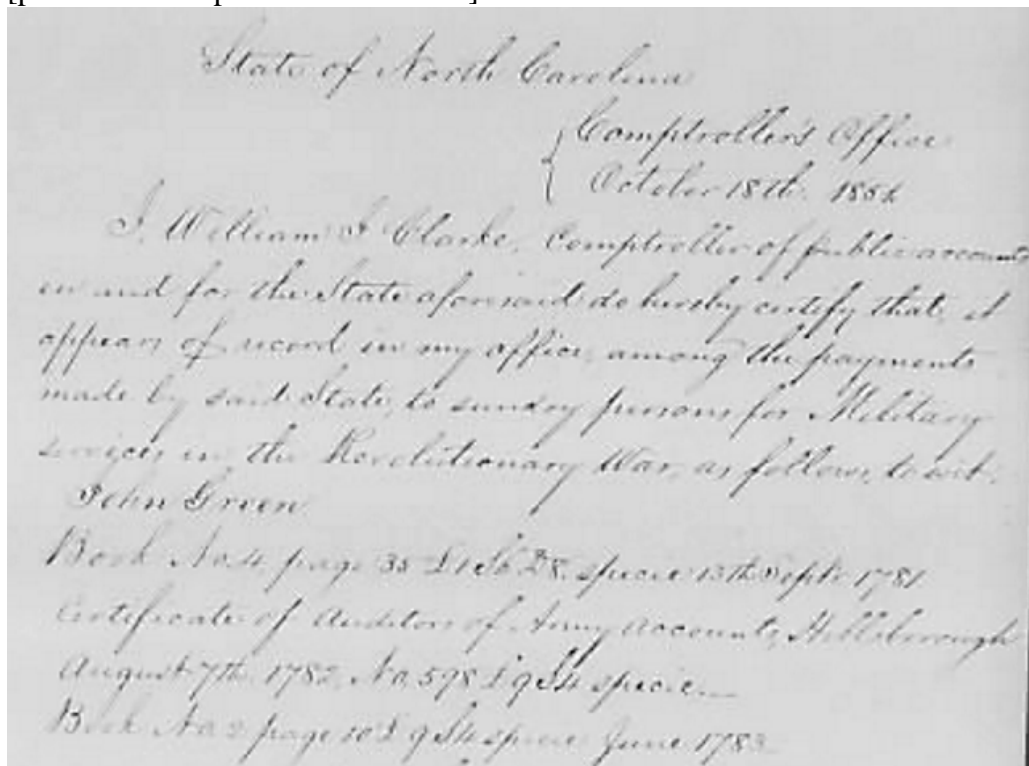 State of North Carolina
Comptroller's Office
October 18th. 1854
I, William J Clarke, Comptroller of public accounts
in and for the State aforesaid do hereby certify that, it
appears of record in my office, among the payments
made by said State, to sundry persons for Military
services in the Revolutionary War, as follows, to wit.
John Green
Book No. 4, page 35 £1 S6 D8. specie 13th Sept. 1781
Certificate of Auditors of Army accounts, Hillsborough
August 7th 1782, No. 598 £9 S4 specie.
Book No. 2 page 10 £9 S4 specie June 1783